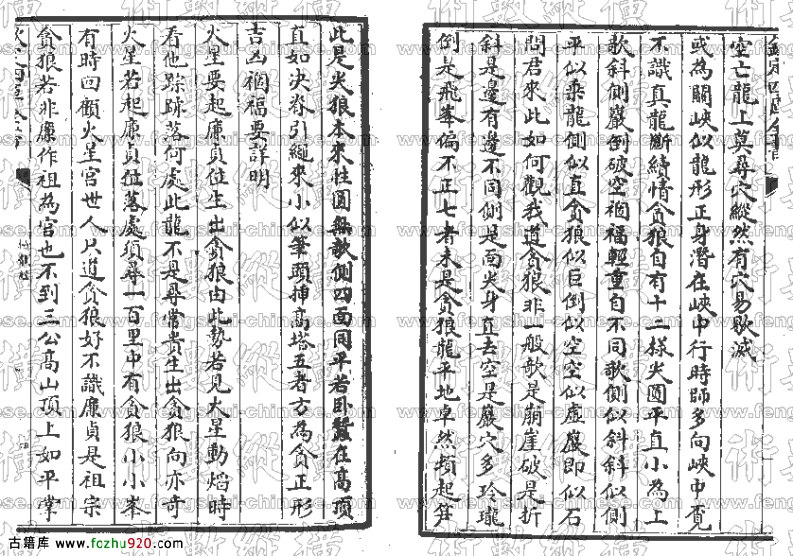 空亡龍上莫尋穴縱然有穴易歇滅
或為關峽似龍形正身潛在峽中行時師多向峽中覓
不識真龍斷續情貪狼自有十二樣尖圓平直小為上
欹斜側巖倒破空禍福輕重自不同欹側似斜斜似側
平似乘龍側似直貪狼似巨倒似空空似虛巖即似石
問君來此如何觀我道貪狼非一般欹是崩崖破是折
斜是邊有邊不同側是面尖身直去空是巖穴多玲瓏
倒是飛峯偏不正七者未是貪狼龍平地卓然頓起笋
此是尖狼本來性圓無欹側四面同平若卧蠶在高頂
直如决脊引繩來小似筆頭揷高塔五者方為貪正形
吉凶禍福要詳明
火星要起廉貞位生出貪狼由此勢若見火星動熖時
看他踪跡落何處此龍不是尋常貴生出貪狼向亦奇
火星若起廉貞位落處須尋一百里中有貪狼小小峯
有時回顧火星宮世人只道貪狼好不識廉貞是祖宗
貪狼若非廉作祖為官也不到三公高山頂上如平掌
www.fengshui-chinese.com
古籍库 www.fozhu920.com